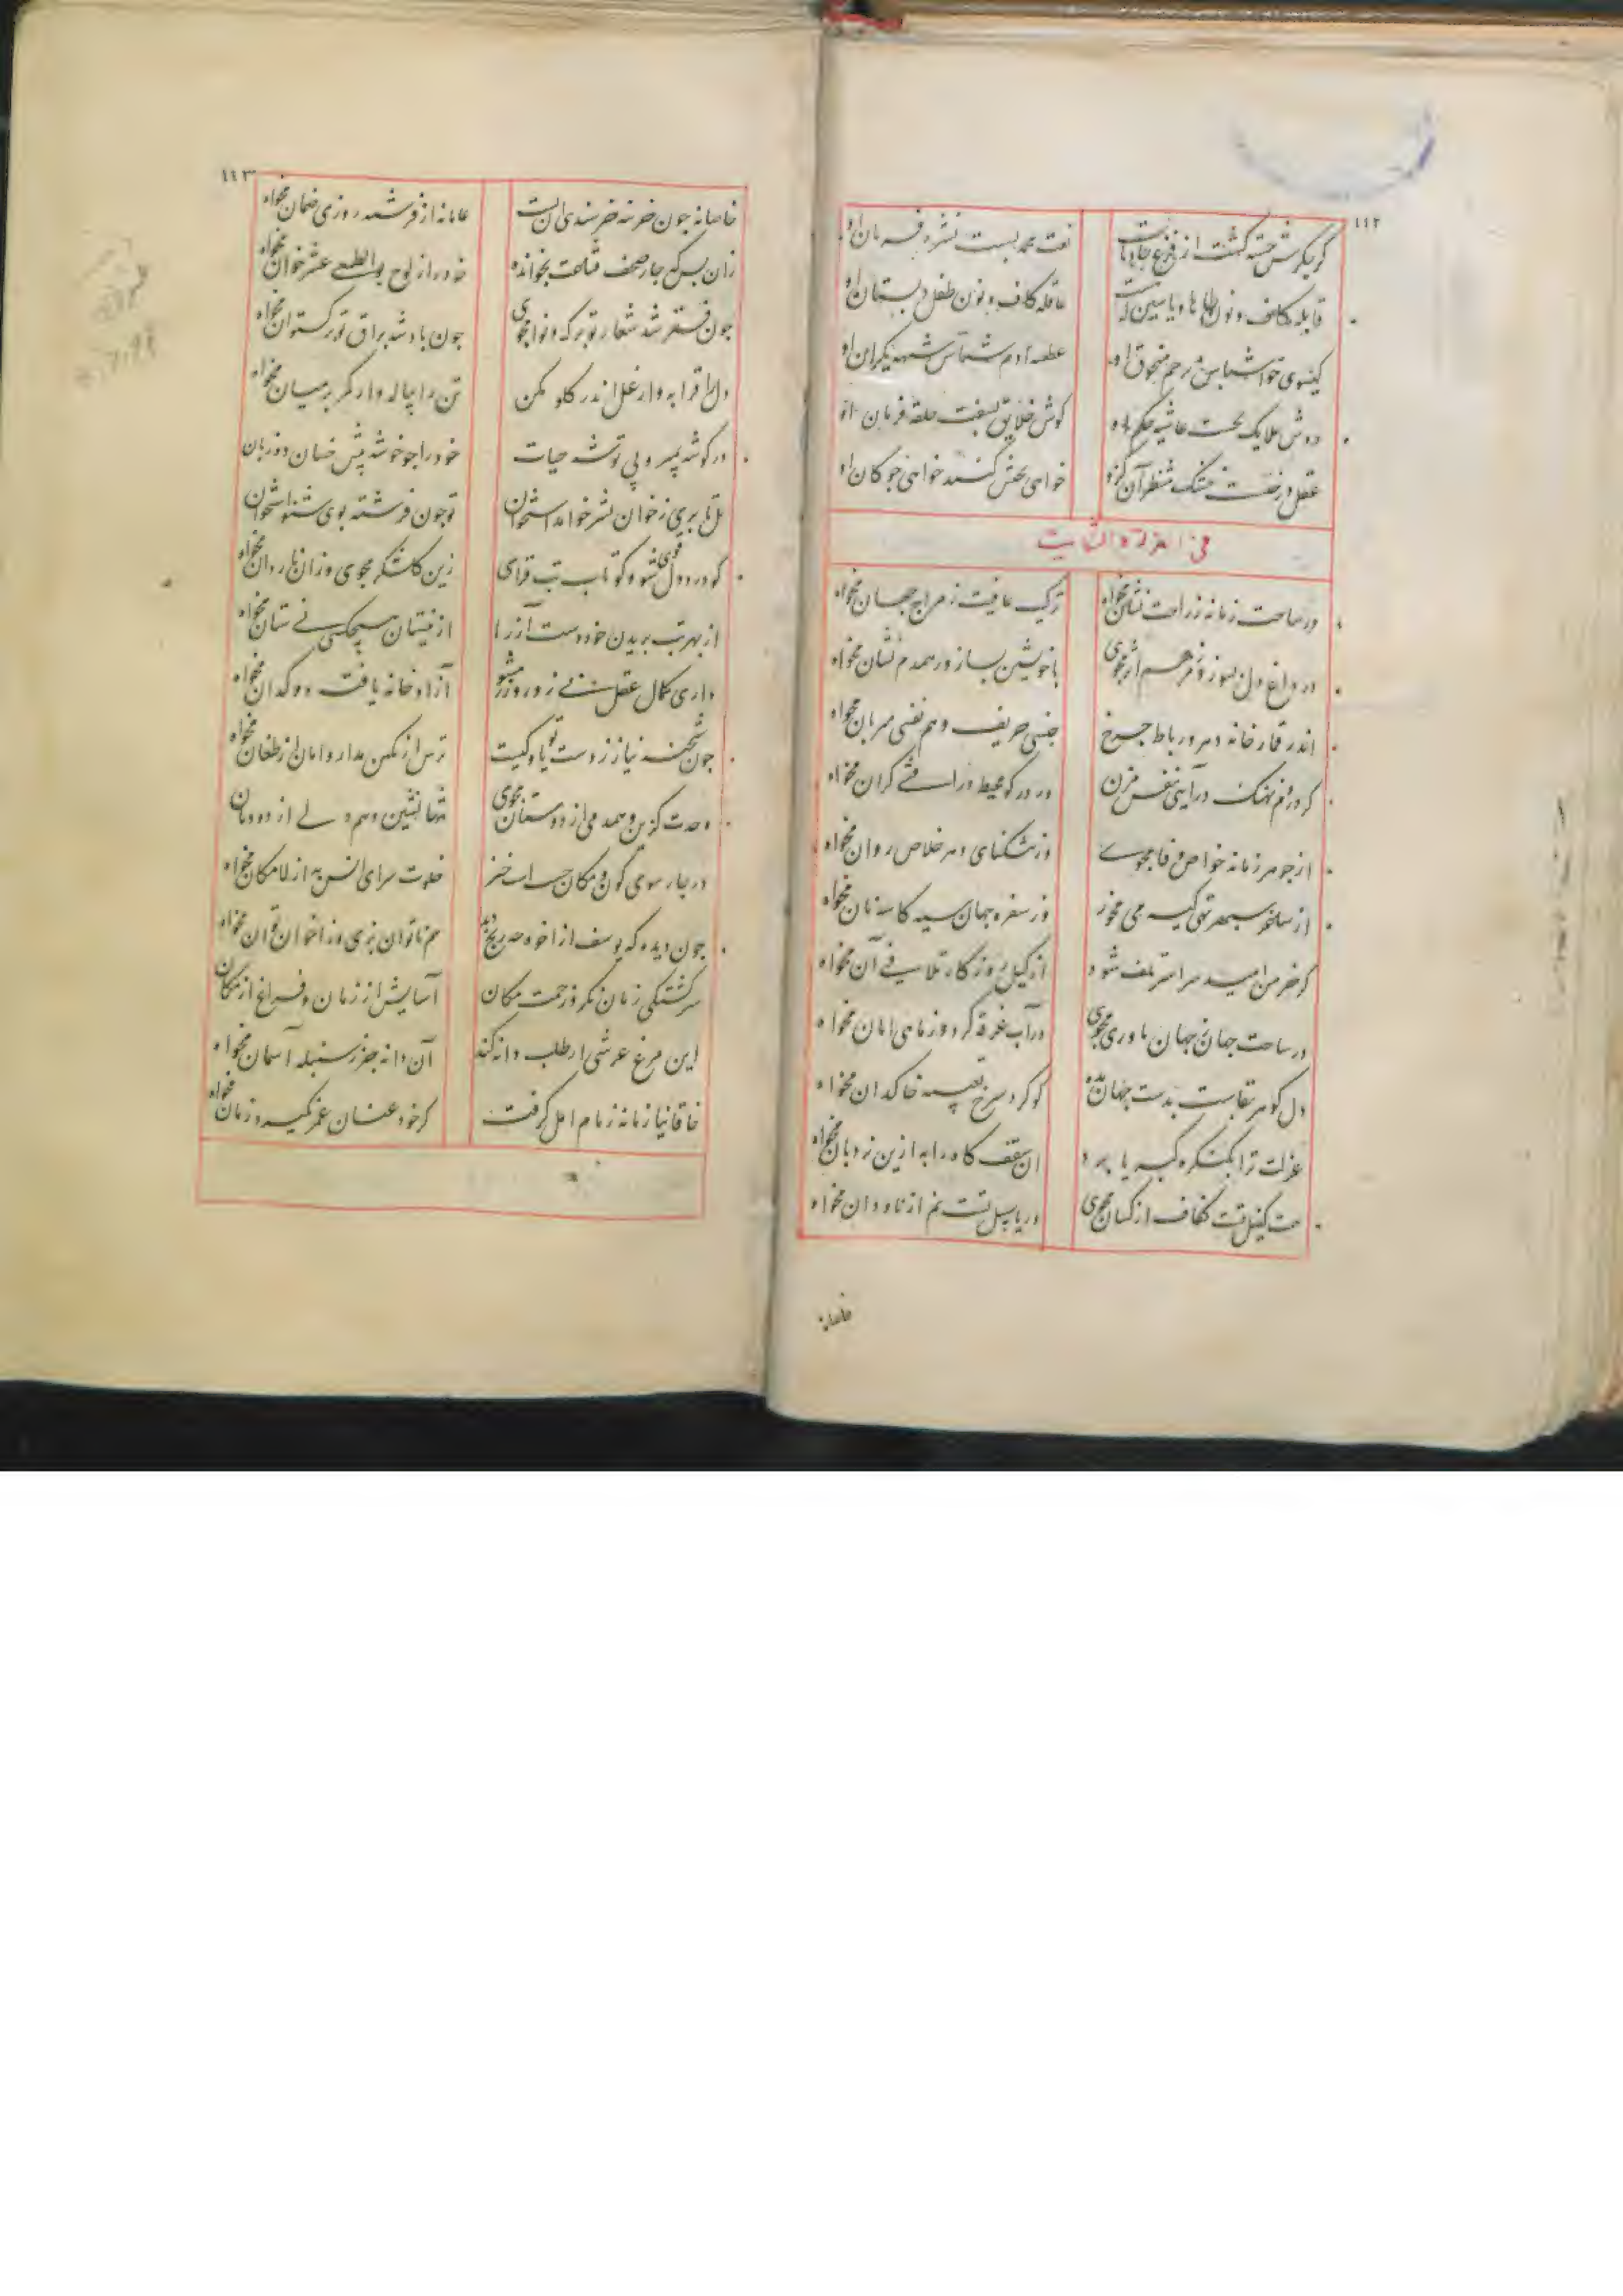 ۱۱۲
کر جکرش خسته کشت از فزع جادوان نعت محمد بست نشره فرمان او
قابله کاف و نون طاها و یاسین که هست عاقله کاف و نون طفل دبستان او
کیسوی حوا شناس پرچم منجوق او عطسه آدم شناس شیهه یکران او
دوش ملایک بخست غاشیه حکم او کوش خلایق بسفت حلقه فرمان او
عقل درخت خشک منتظر آن کزو خواهی کنند خواهی جوکان او
فی العزلة و
در ساحت زمانه ز راحت نشان مخواه ترکیب عافیت ز مزاج جهان مخواه
در داغ دل بسوز و ز مرهم اثر مجوی با خویشتن بساز و ز همدم نشان مخواه
اندر قمارخانه دهر و رباط چرخ جنس حریف و هم نفس مهربان مخواه
کر در دم نهنک درآیی نفس مزن ور در کو محیط درافتی کران مخواه
از جوهر زمانه خواص وفا مجوی وز تنکنای دهر خلاص روان مخواه
از ساغر سپهر تهی کیسه می مخور وز سفره جهان سیه کاسه نان مخواه
کر خرمن امید سراسر تلف شود از کیل روزکار تلافی آن مخواه
در ساحت جهان جهان ماوری مجوی در آب غرقه کرد و ز ماهی امان مخواه
دل کوهر بقاست بدست جهان مده کوکرد سرخ تعبیه خاکدان مخواه
عزلت ترا بکنکره کبریا برد آن سقف کاه را به ازین نردبان مخواه
هست کفیل تست کفاف از کسان مجوی دریا سبیل تست نم از ناودان مخواه
خاصانه
۱۱۳
خاصانه جون خزینه خرسندی آن تست عامانه از فرشته روزی ضمان مخواه
زان پس که چار صحف قناعت بخوانده خود را ز لوح بوالطمعی عشر خوان مخواه
جون فقر شد شعار تو برک و نوا مجوی جون باد شد براق تو برکستوان مخواه
دل را قرابه وار غل اندر کلو مکن تن را پیاله وار کمر بر میان مخواه
در کوشه بمیر و پی توشه حیات خود را جو خوشه پیش خسان ده زبان
کو در دل شو و کو تاب تب فزای زین کلشکر مجوی و زان ناردان مخواه
از بهر تب بریدن خود دست آز را از نیستان هیچکسی نی ستان مخواه
داری کمال عقل پی زور و زر مشو آزادخانه یافت دوکدان مخواه
جون شحنه نیاز ز دست تو پا کیت ترس از تکین مدار و امان از طغان مخواه
وحدت کزین و همدمی از دوستان مجوی تنها نشین و همدلی از دودمان
در چار سوی کون و مکان جسر است خیز خلوت سرای انس به از لامکان مخواه
جون دیده که یوسف از اخوه چه رنج دید هم ناتوان بزی و ز اخوان توان مخواه
سرکشتکی زمان نکر و زحمت مکان آسایش از زمان و فراغ از مکان
این مرغ عرشی ار طلب دانه کند آن دانه جز ز سنبله آسمان مخواه
خاقانیا زمانه زمام امل کرفت کر خود عنان عمر بکیرد زمان مخواه